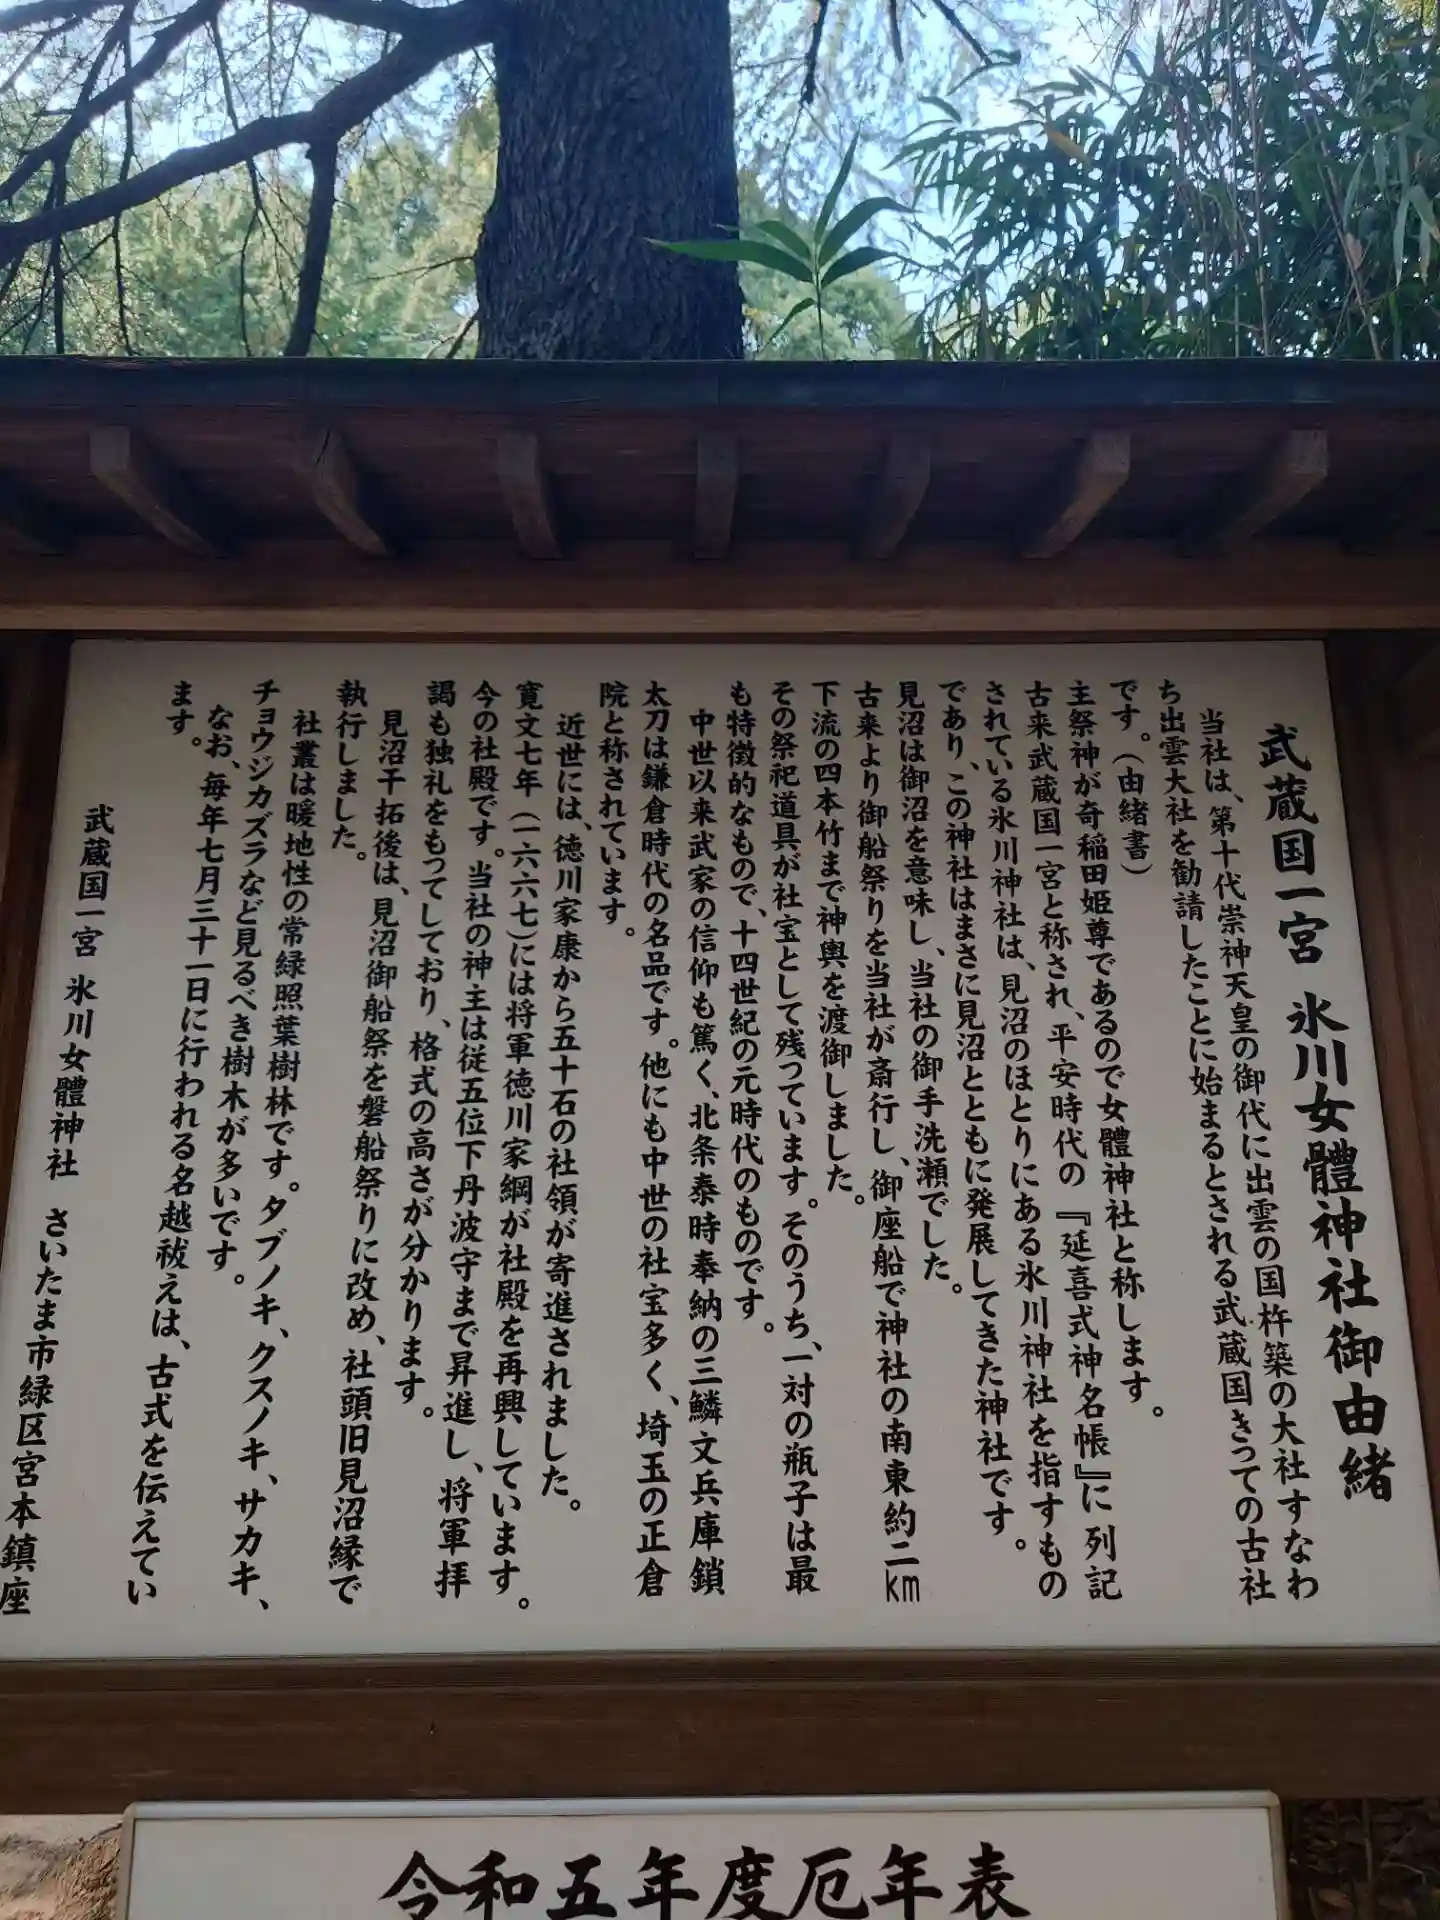 武蔵国一宮 氷川女體神社御由緒
当社は、第十代崇神天皇の御代に出雲の国杵築の大社すなわ
ち出雲大社を勧請したことに始まるとされる武蔵国きっての古社
です。(由緒書)
主祭神が奇稲田姫尊であるので女體神社と称します。
古来武蔵国一宮と称され、平安時代の『延喜式神名帳』に列記
されている氷川神社は、見沼のほとりにある氷川神社を指すもの
であり、この神社はまさに見沼とともに発展してきた神社です。
見沼は御沼を意味し、当社の御手洗瀬でした。
古来より御船祭りを当社が斎行し、御座船で神社の南東約二km
下流の四本竹まで神輿を渡御しました。
その祭祀道具が社宝として残っています。そのうち、一対の瓶子は最
も特徴的なもので、十四世紀の元時代のものです。
中世以来武家の信仰も篤く、北条泰時奉納の三鱗文兵庫鎖
太刀は鎌倉時代の名品です。他にも中世の社宝多く、埼玉の正倉
院と称されています。
近世には、徳川家康から五十石の社領が寄進されました。
寛文七年(一六六七)には将軍徳川家綱が社殿を再興しています。
今の社殿です。当社の神主は従五位下丹波守まで昇進し、将軍拝
謁も独礼をもってしており、格式の高さが分かります。
見沼干拓後は、見沼御船祭を磐船祭りに改め、社頭旧見沼縁で
執行しました。
社叢は暖地性の常緑照葉樹林です。タブノキ、クスノキ、サカキ、
チョウジカズラなど見るべき樹木が多いです。
なお、毎年七月三十一日に行われる名越祓えは、古式を伝えてい
ます。
武蔵国一宮 氷川女體神社 さいたま市緑区宮本鎮座
令和五年度厄年表